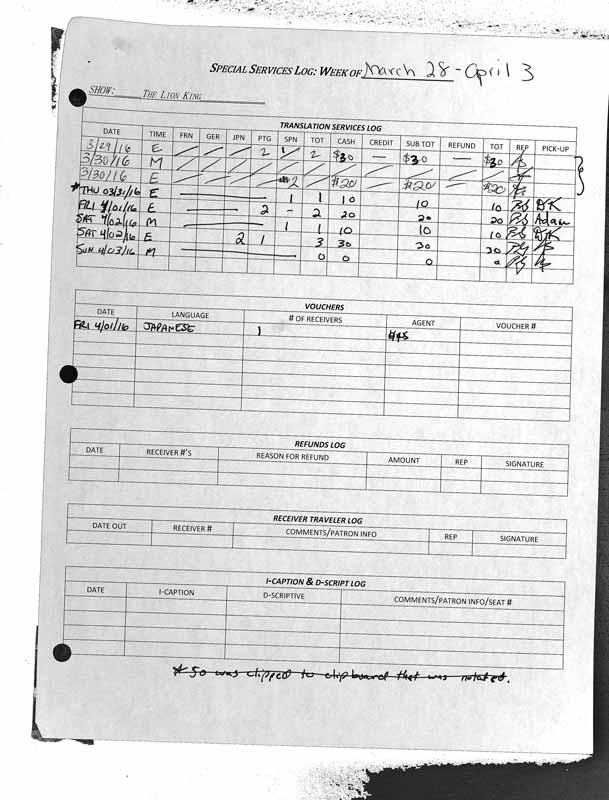 SPECIAL SERVICES LOG: WEEK OF March 28 - April 3
SHOW: THE LION KING
TRANSLATION SERVICES LOG
DATE TIME FRN GER JPN PTG SPN TOT CASH CREDIT SUB TOT REFUND TOT REP PICK-UP
3/29/16 E 2 1 2 $30 — $30 — $30
3/30/16 M
3/30/16 E 2 $20 $20 $20
* THU 03/31/16 E 1 1 10 10 10 DK
FRI 4/01/16 E 2 - 2 20 20 20 Adam
SAT 4/02/16 M 1 1 10 10 10 DK
SAT 4/02/16 E 2 1 3 30 30 30
SUN 4/03/16 M 0 0 0 0
VOUCHERS
DATE LANGUAGE # OF RECEIVERS AGENT VOUCHER #
FRI 4/01/16 JAPANESE 1
REFUNDS LOG
DATE RECEIVER #'S REASON FOR REFUND AMOUNT REP SIGNATURE
RECEIVER TRAVELER LOG
DATE OUT RECEIVER # COMMENTS/PATRON INFO REP SIGNATURE
I-CAPTION & D-SCRIPT LOG
DATE I-CAPTION D-SCRIPTIVE COMMENTS/PATRON INFO/SEAT #
* 50 was clipped to clipboard that was notated.